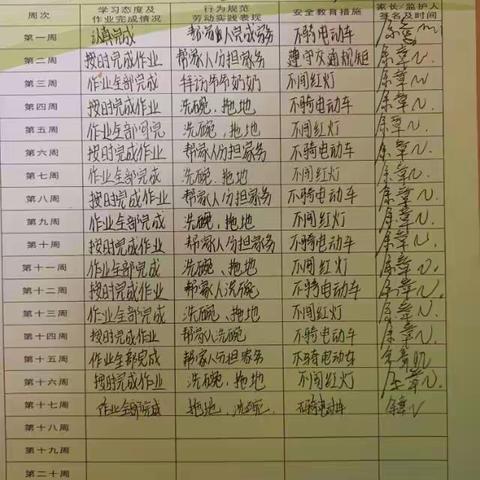 周次 学习态度及作业完成情况 行为规范劳动实践表现 安全教育措施 家长/监护人签名及时间
第一周 认真完成 帮家人完成家务 不骑电动车
第二周 按时完成作业 帮家人分担家务 遵守交通规矩
第三周 作业全部完成 拜访爷爷奶奶 不闯红灯
第四周 按时完成作业 洗碗,拖地 不骑电动车
第五周 作业全部完 洗碗,拖地 不闯红灯
第六周 按时完成作业 帮家人分担家务 不骑电动车
第七周 作业全部完成 洗碗,拖地 不闯红灯
第八周 按时完成作业 帮家人分担家务 不骑电动车
第九周 作业全部完成 洗碗,拖地 不闯红灯
第十周 按时完成作业 帮家人分担家务 不骑电动车
第十一周 作业全部完成 洗碗、拖地 不闯红灯
第十二周 按时完成作业 帮家人洗碗 不骑电动车
第十三周 作业全部完成 洗碗、拖地 不闯红灯
第十四周 按时完成作业 帮家人洗碗 不骑电动车
第十五周 作业全部完成 帮家人分担家务 不骑电动车
第十六周 按时完成作业 洗碗,拖地 不闯红灯
第十七周 作业全部完成 拖地,洗碗 不骑电动车
第十八周
第十九周
第二十周